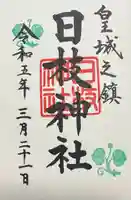 皇城之鎮
日枝神社
令和五年三月二十一日